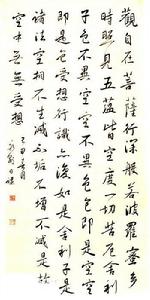 觀自在菩薩行深般若波羅蜜多
時照見五蘊皆空度一切苦厄舍利
子色不異空空不異色色即是空空
即是色受想行識亦復如是舍利子是
諸法空相不生滅不垢不增不減是故
空中無無受想